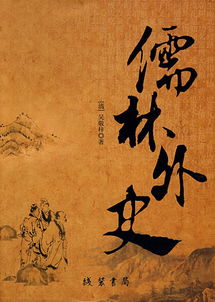 儒林外史
[清]吴敬梓 著
线装书局